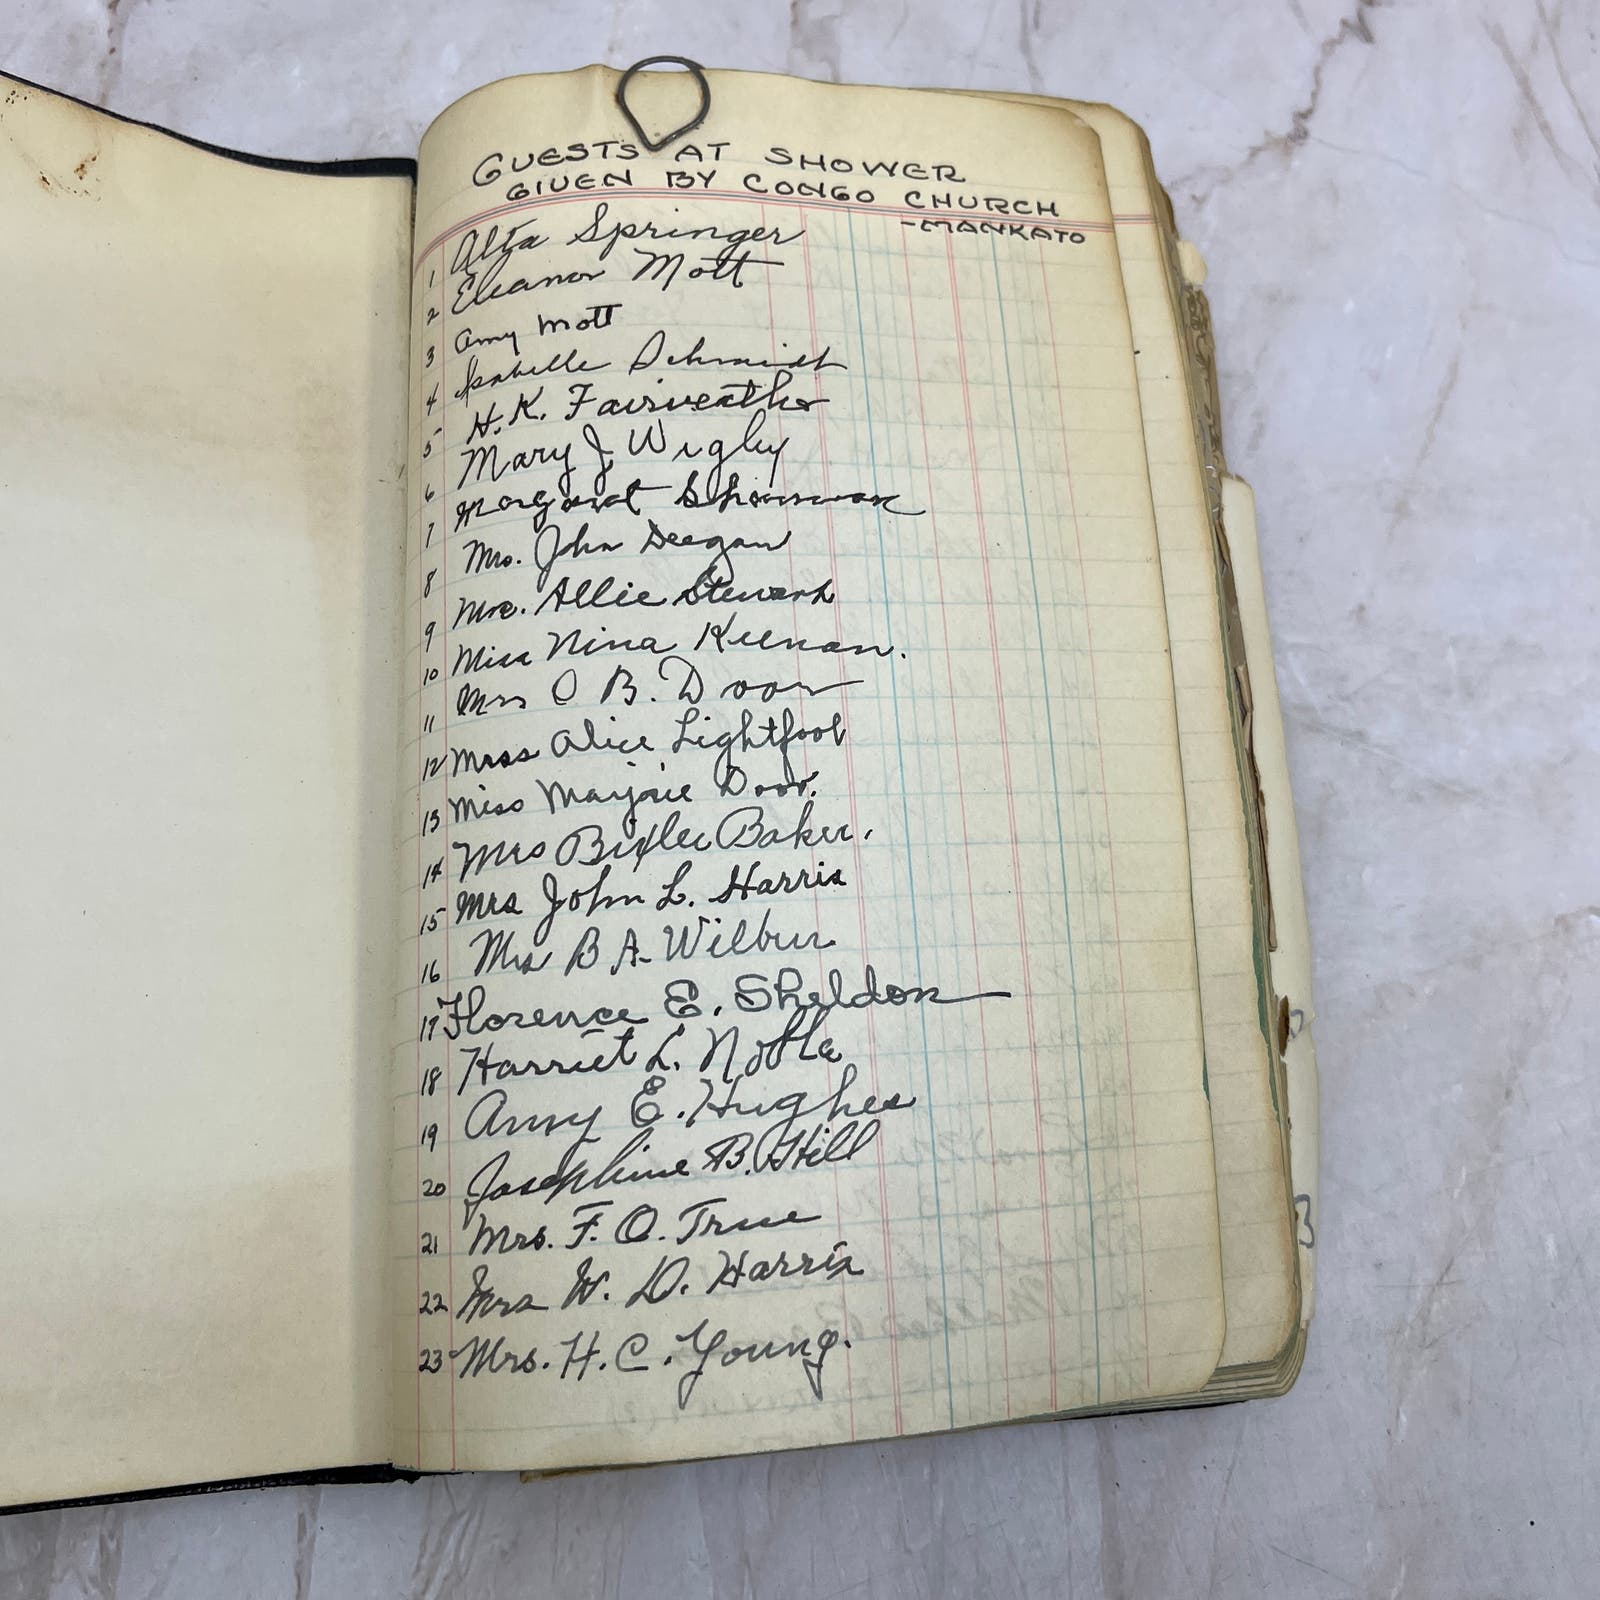 GUESTS AT SHOWER
GIVEN BY CONGO CHURCH
-MANKATO
1 Alta Springer
2 Eleanor Mott
3 Amy Mott
4 Isabelle Schmidt
5 H. K. Fairweather
6 Mary J Wigley
7 Margaret Showman
8 Mrs. John Deegan
9 Mrs. Allie Stewart
10 Miss Nina Keenan.
11 Mrs C B. Door
12 Miss Alice Lightfoot
13 Miss Marjorie Door.
14 Mrs Bixler Baker.
15 Mrs John L. Harris
16 Mrs B A. Wilbur
17 Florence E. Sheldon
18 Harriet L. Noble
19 Amy E. Hughes
20 Josephine B. Hill
21 Mrs. F. O. True
22 Mrs W. D. Harris
23 Mrs. H. C. Young.
3